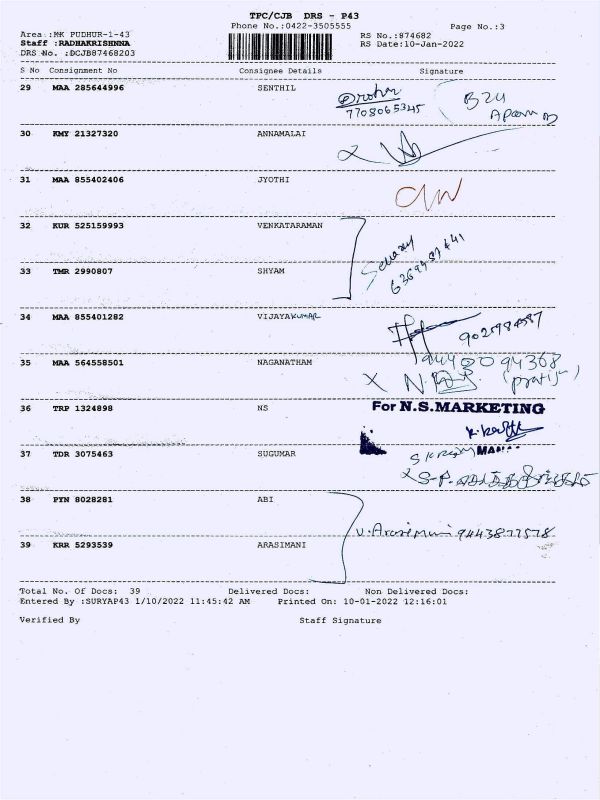 TPC/CJB DRS - P43
Phone No.:0422-3505555
Page No.:3
Area :MK PUDHUR-1-43
RS No.:874682
Staff :RADHAKRISHNNA
RS Date:10-Jan-2022
DRS No. :DCJB87468203
S No Consignment No Consignee Details Signature
29 MAA 285644996 SENTHIL
7708065345
B24
30 KMY 21327320 ANNAMALAI
31 MAA 855402406 JYOTHI
32 KUR 525159993 VENKATARAMAN
33 TMR 2990807 SHYAM
34 MAA 855401282 VIJAYAKUMAR
35 MAA 564558501 NAGANATHAM
9442094368
36 TRP 1324898 NS For N.S.MARKETING
37 TDR 3075463 SUGUMAR
38 PYN 8028281 ABI
V. Arasimani 9443877578
39 KRR 5293539 ARASIMANI
Total No. Of Docs: 39 Delivered Docs: Non Delivered Docs:
Entered By :SURYAP43 1/10/2022 11:45:42 AM Printed On: 10-01-2022 12:16:01
Verified By Staff Signature